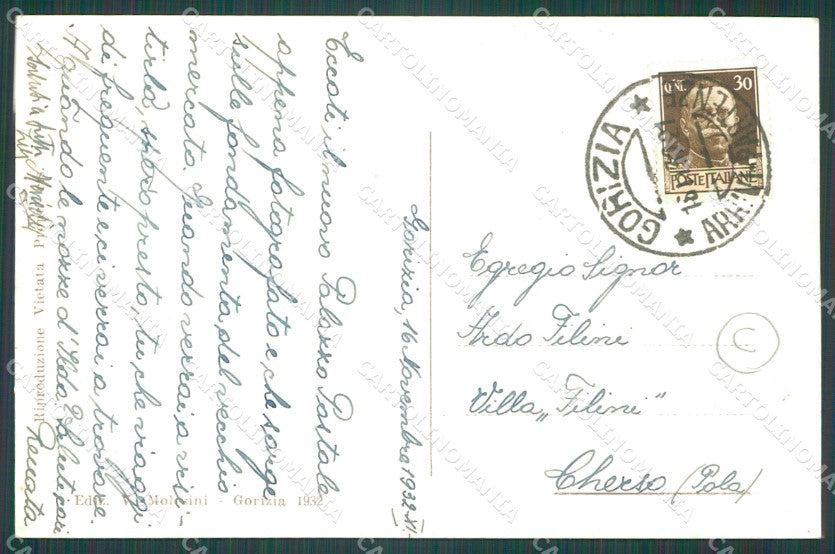 Gorizia, 16 Novembre 1932-XI-
Eccoti il nuovo Palazzo Postale
appena fotografato e, che sorge
sulle fondamenta, del vecchio
mercato. Quando verrai, a visi-
tirlo? Spero presto, tu, che viaggi
di frequente e, ci verrai, a trovare.
A quando le nozze d'Ilda? Saluti cari
Renata
Egregio Signor
Ardo Filini
Villa „Filini"
Cherso (Pola)
30
POSTE ITALIANE
GORIZIA
Riproduzione Vietata
Ediz. V. Molesini - Gorizia 1932
C
CARTOLINOMANIA